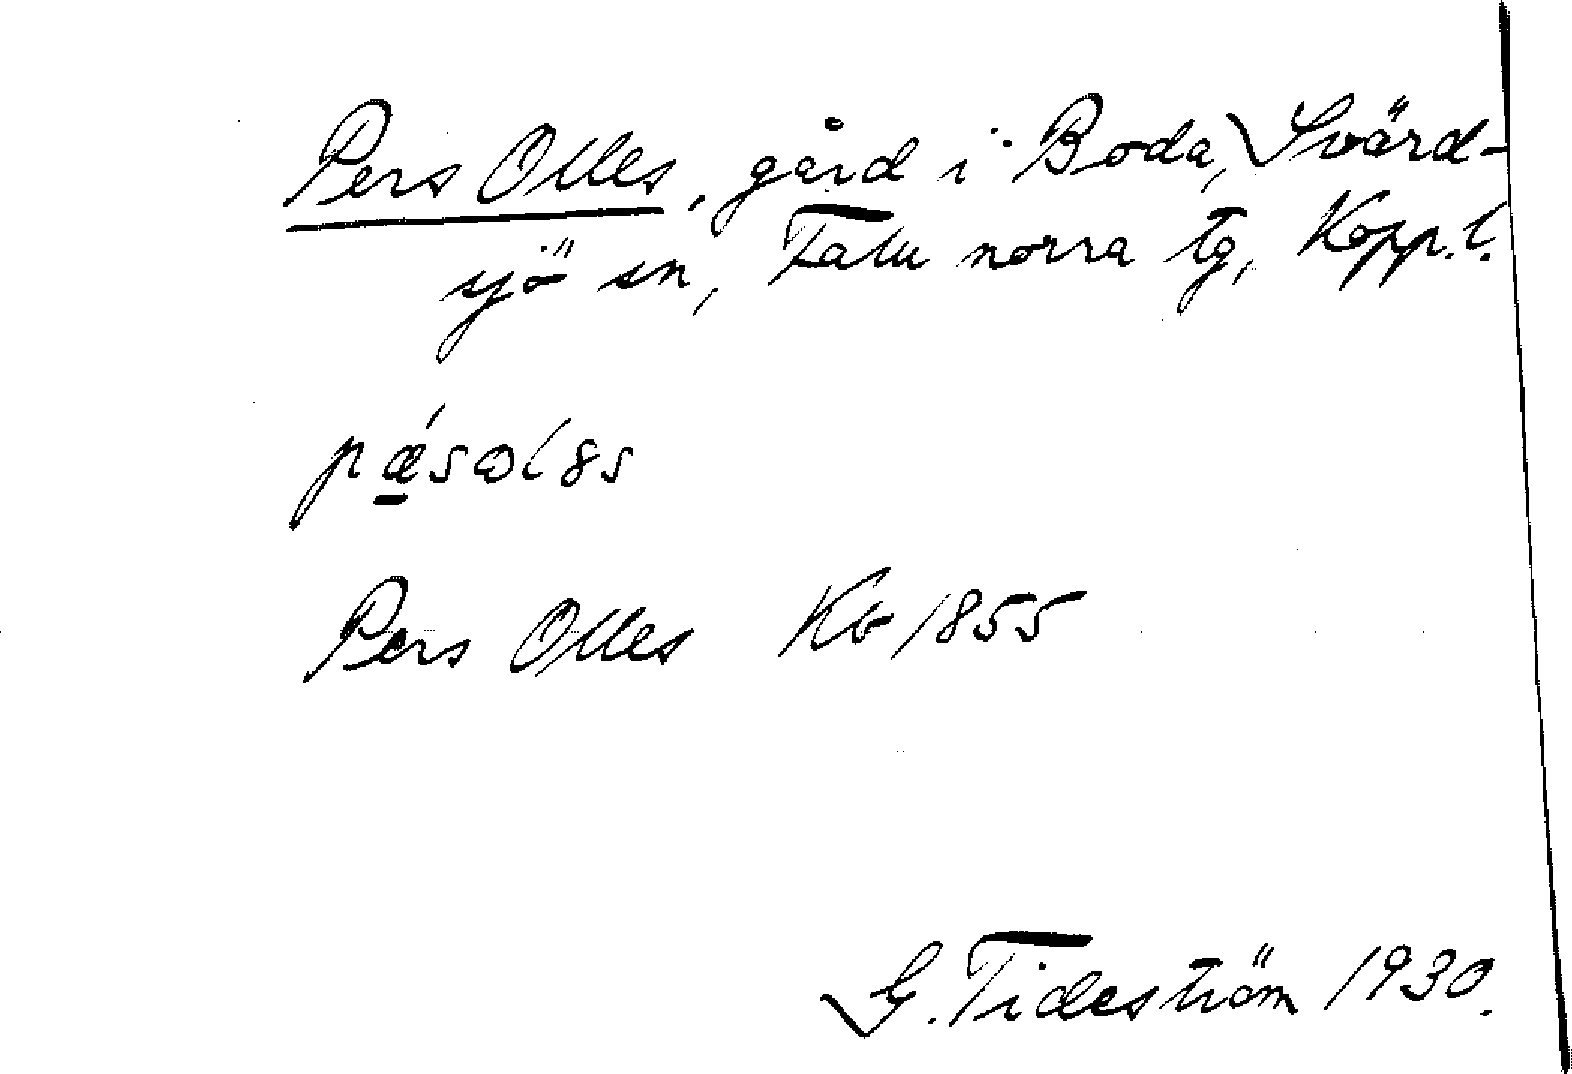 Pers Olles, gård i Boda, Svärd-
sjö sn, Falu norra tg, Kopp. l.
Pers Olles Kb 1855
G. Tideström 1930.